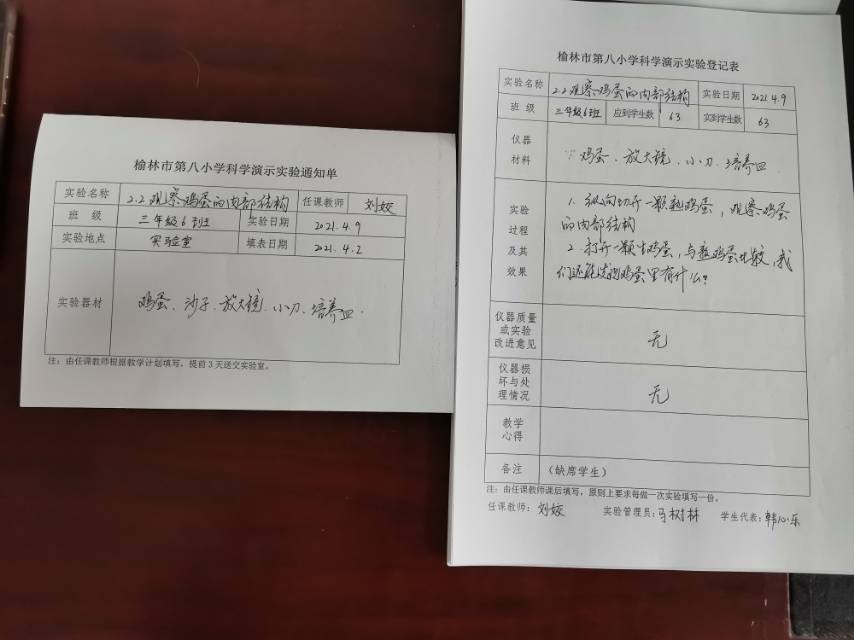 榆林市第八小学科学演示实验通知单
实验名称 2.2观察鸡蛋的内部结构 任课教师 刘姣
班 级 三年级6班 实验日期 2021.4.9
实验地点 实验室 填表日期 2021.4.2
实验器材 鸡蛋、沙子、放大镜、小刀、培养皿.
注：由任课教师根据教学计划填写，提前3天送交实验室。
榆林市第八小学科学演示实验登记表
实验名称 2.2观察鸡蛋的内部结构 实验日期 2021.4.9
班 级 三年级6班 应到学生数 63 实到学生数 63
仪器
材料
鸡蛋、放大镜、小刀、培养皿
实验
过程
及其
效果
1. 纵向切开一颗熟鸡蛋，观察鸡蛋
的内部结构
2. 打开一颗生鸡蛋，与熟鸡蛋比较，我
们还能发现鸡蛋里有什么？
仪器质量
或实验
改进意见
无
仪器损
坏与处
理情况
无
教学
心得
备注 （缺席学生）
注：由任课教师课后填写，原则上要求每做一次实验填写一份。
任课教师：刘姣 实验管理员：马树林 学生代表：韩心乐